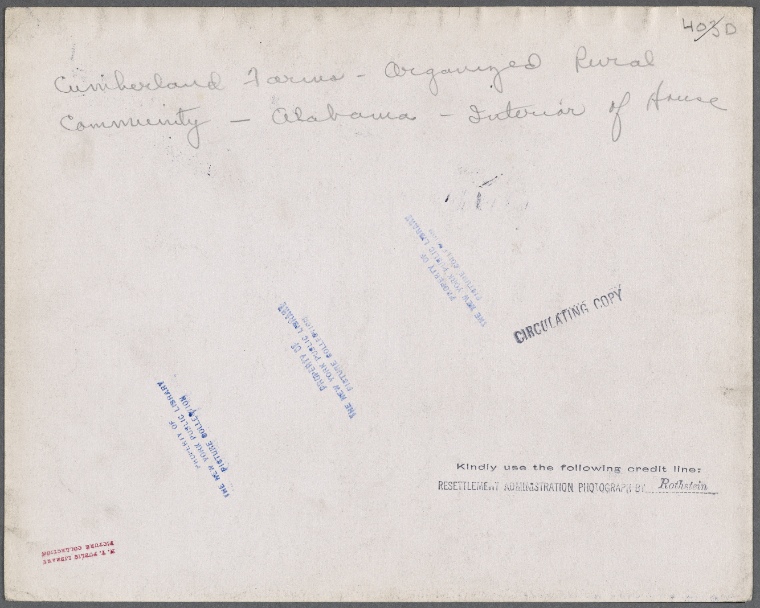 403D
Cumberland Farms - Organized Rural
Community - Alabama - Interior of House
PROPERTY OF
THE NEW YORK PUBLIC LIBRARY
PICTURE COLLECTION
CIRCULATING COPY
PROPERTY OF
THE NEW YORK PUBLIC LIBRARY
PICTURE COLLECTION
PROPERTY OF
THE NEW YORK PUBLIC LIBRARY
PICTURE COLLECTION
Kindly use the following credit line:
RESETTLEMENT ADMINISTRATION PHOTOGRAPH BY Rothstein
N. Y. PUBLIC LIBRARY
PICTURE COLLECTION